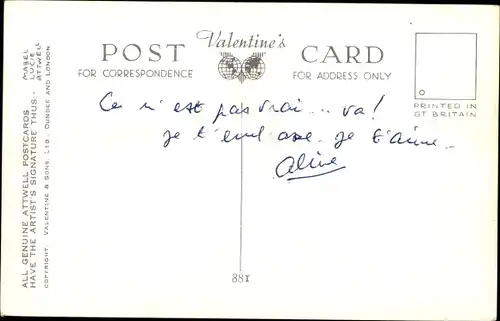 Valentine's
POST CARD
FOR CORRESPONDENCE
FOR ADDRESS ONLY
PRINTED IN
GT BRITAIN
Ce n'est pas vrai... va!
je t'embrasse. je t'aime.
Aline
88I
ALL GENUINE ATTWELL POSTCARDS
HAVE THE ARTIST'S SIGNATURE THUS:-
MABEL
LUCIE
ATTWELL
COPYRIGHT. VALENTINE & SONS, LTD., DUNDEE AND LONDON.